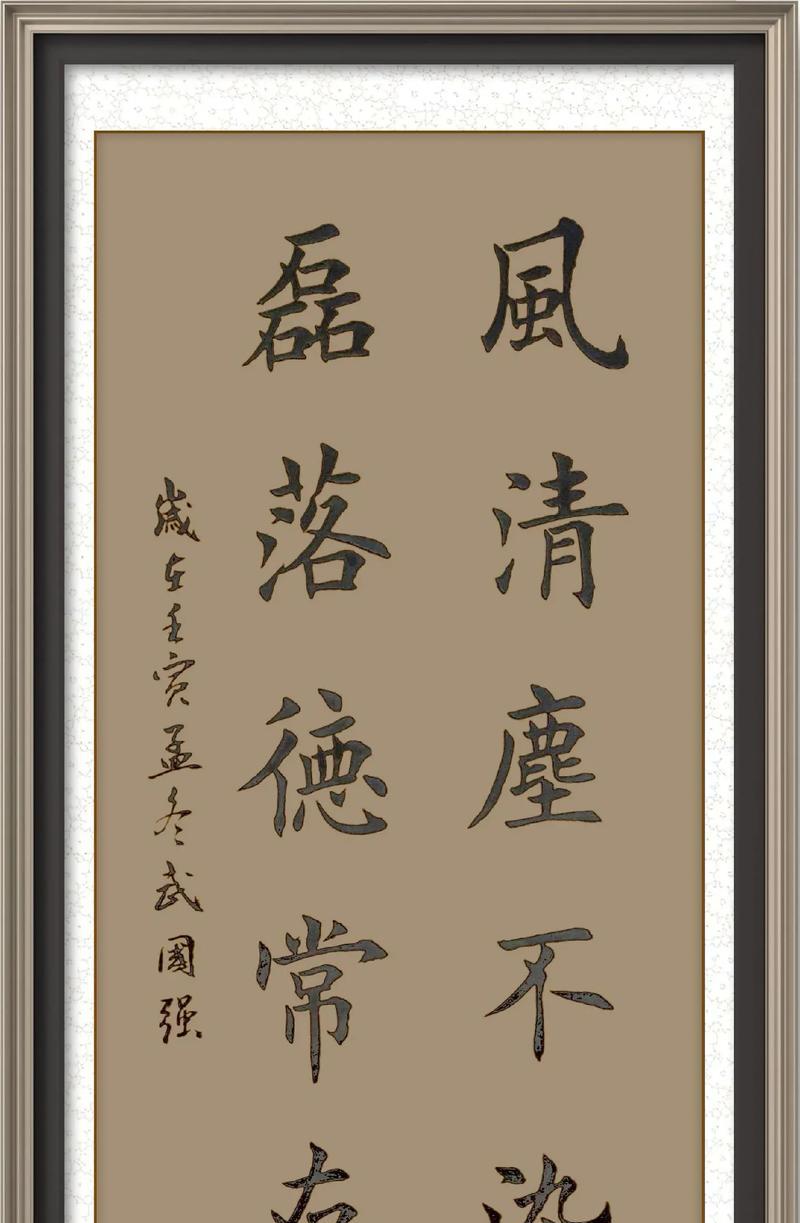 風清塵不染
磊落德常
歲在壬寅孟冬武國强